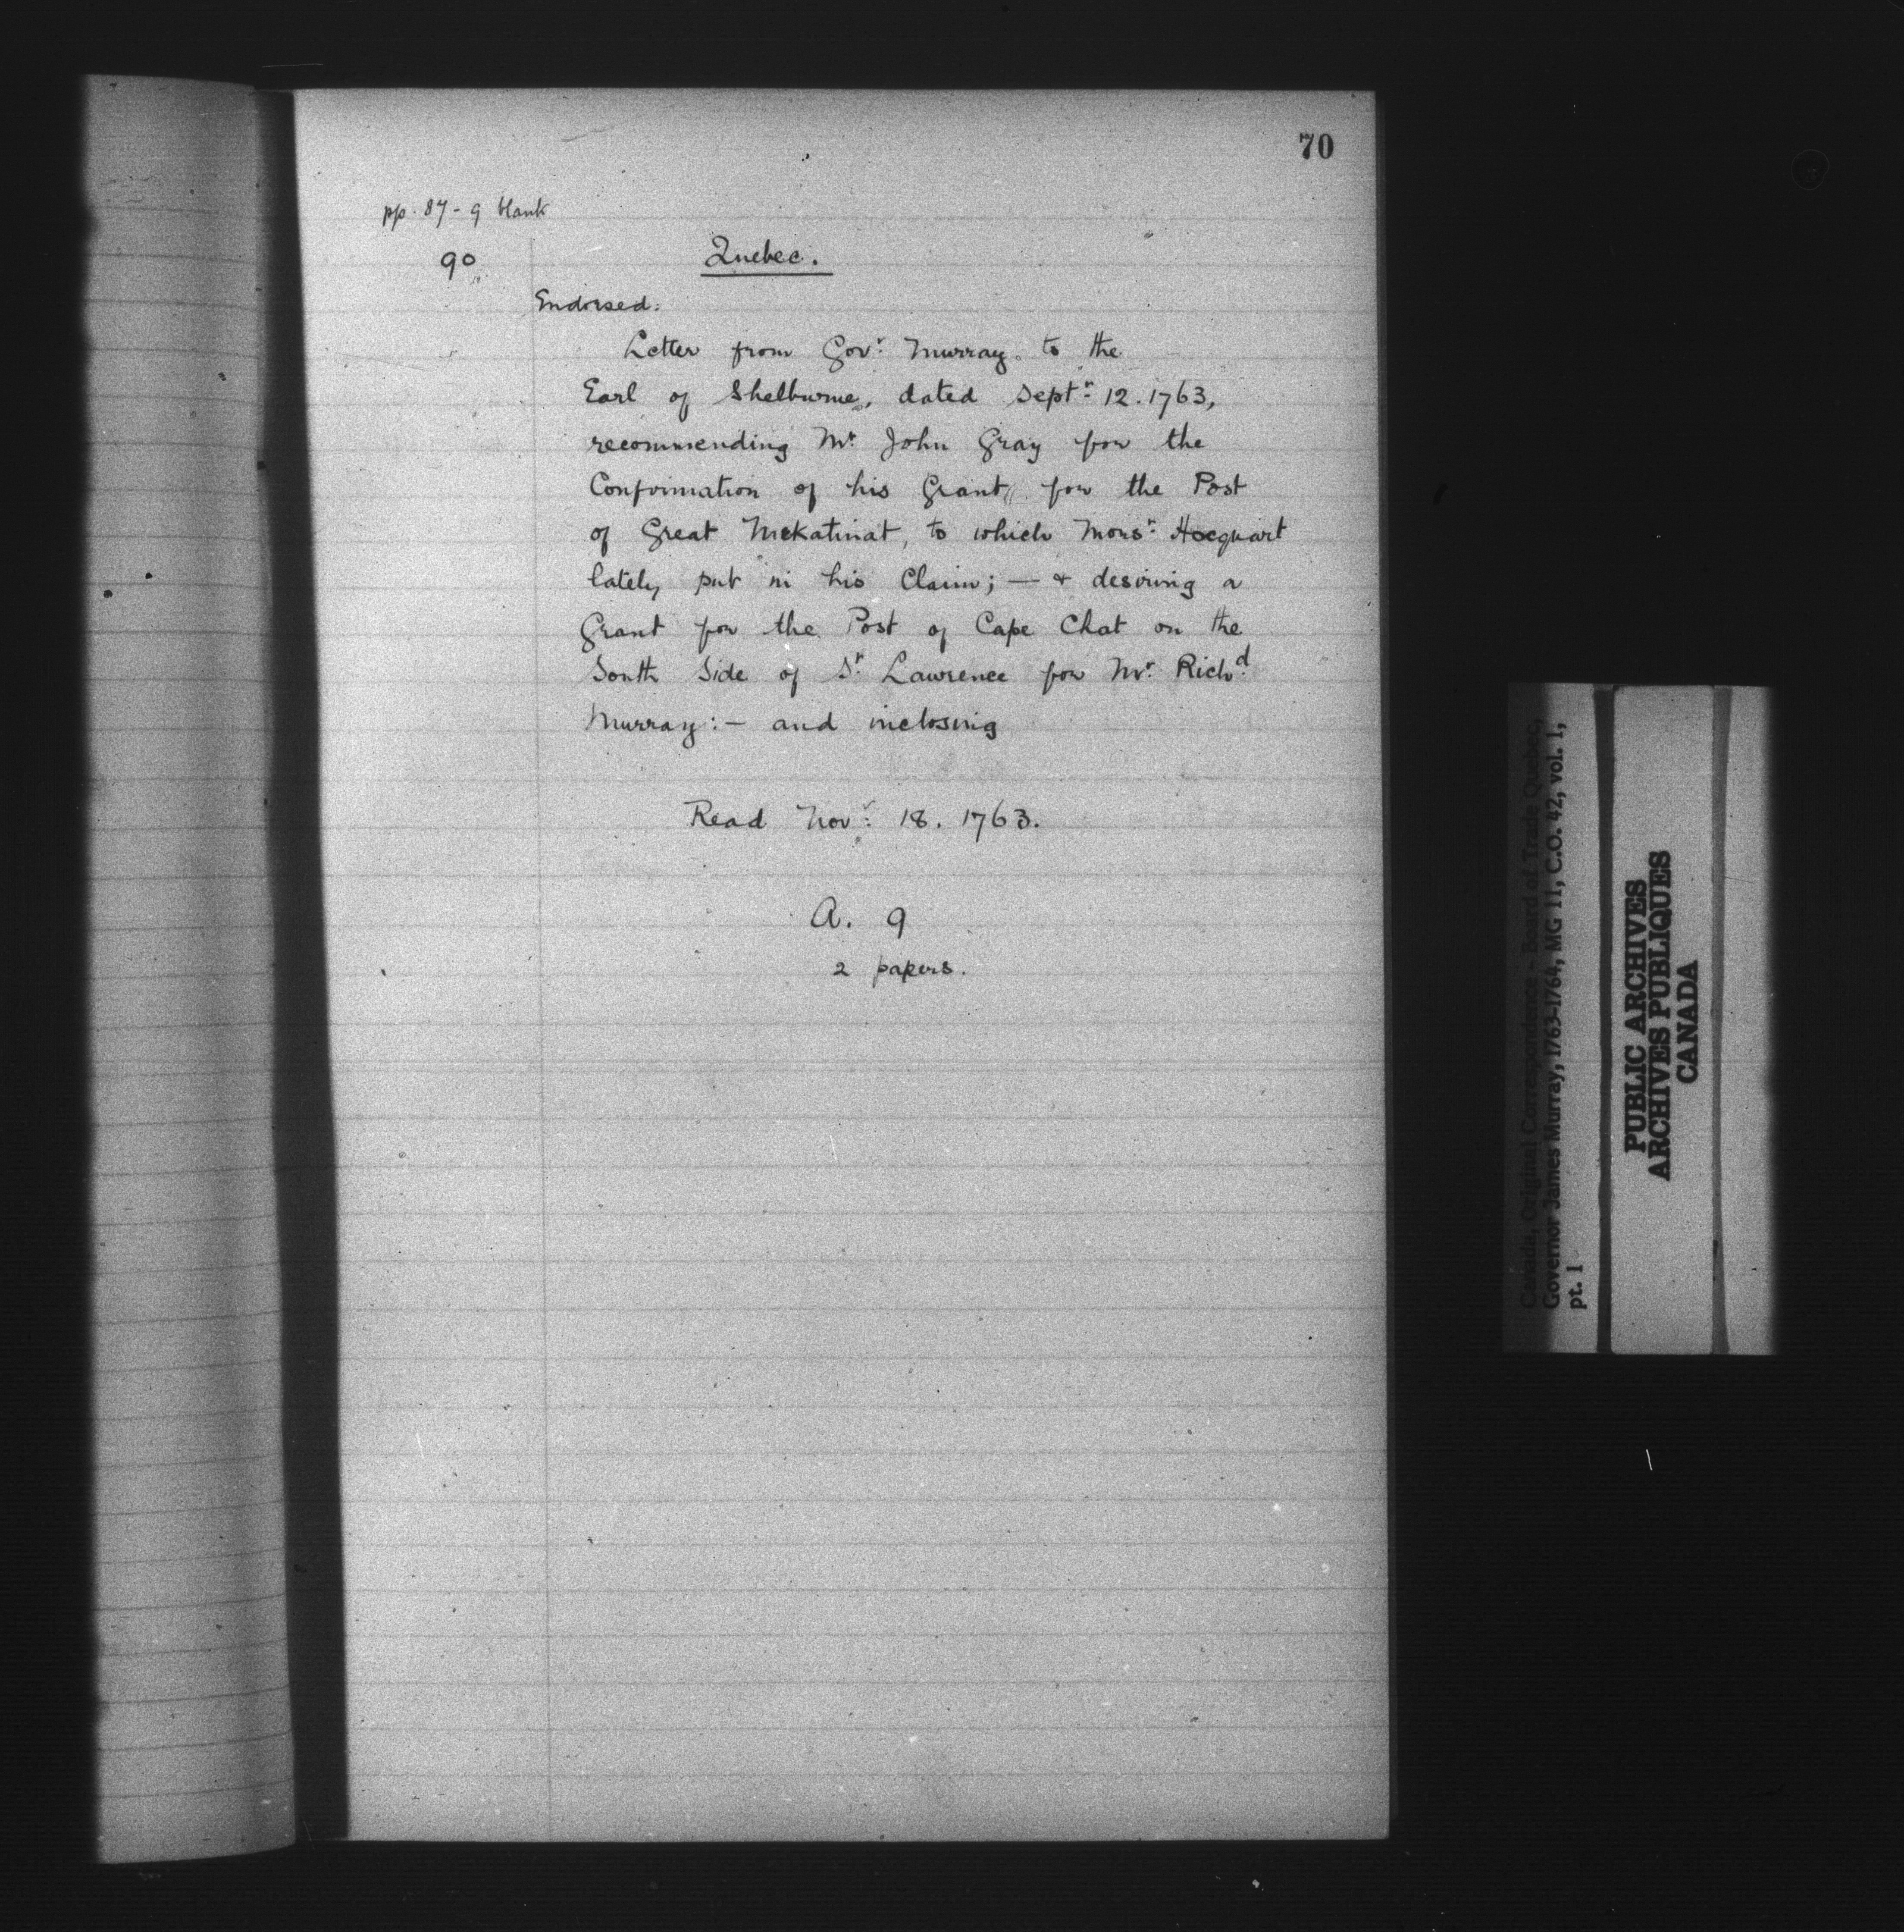 70
pp. 87-9 blank
90
Quebec.
Endorsed.
Letter from Govr. Murray to the
Earl of Shelburne, dated Septr. 12. 1763,
recommending Mr. John Gray for the
Confirmation of his Grant, for the Post
of Great Mekatinat, to which Monsr. Hocquart
lately put in his Claim; — & desiring a
Grant for the Post of Cape Chat on the
South Side of Sr. Lawrence for Mr. Richd.
Murray: — and inclosing
Read Novr. 18. 1763.
A. 9
2 papers.
Canada, Original Correspondence - Board of Trade Quebec,
Governor James Murray, 1763-1764, MG 11, C.O. 42, vol. 1,
pt. 1
PUBLIC ARCHIVES
ARCHIVES PUBLIQUES
CANADA